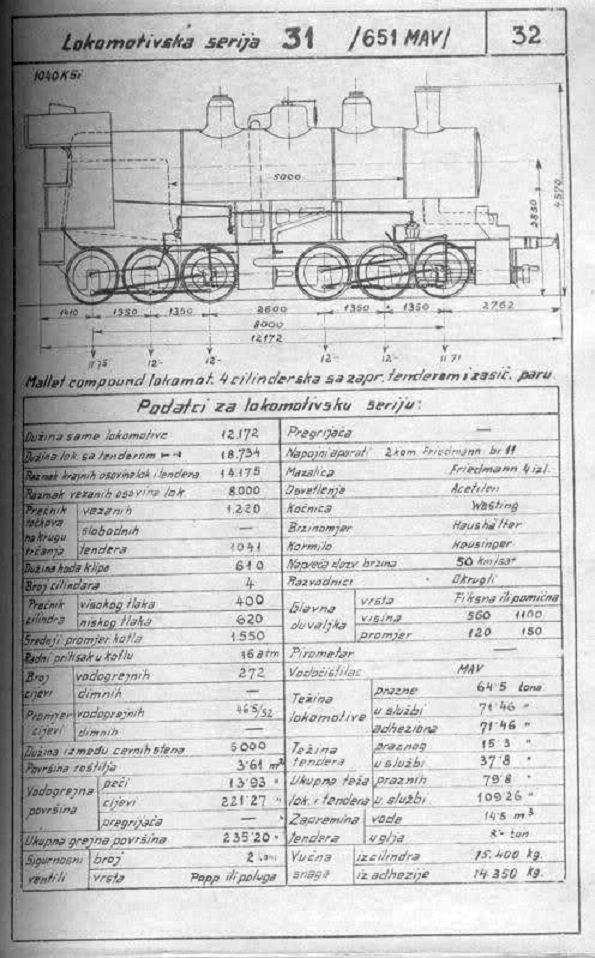 Lokomotivska serija 31 /651 MAV/ 32
1040KSi
5000
2830
4570
1410 1350 1350 2600 1350 1350 2762
8000
12172
11·75 12·- 12·- 12·- 12·- 11·71
Mallet compound lokomot. 4 cilinderska sa zapr. tenderom i zasić. paru.
Podatci za lokomotivsku seriju:
Dužina same lokomotive 12.172
Dužina lok sa tenderom 18.734
Razmak krajnih osovina lok i tendera 14.175
Razmak vezanih osovina lok. 8.000
Prečnik točkova na krugu trčanja
vezanih 1.220
slobodnih —
tendera 1041
Dužina hoda klipa 610
Broj cilindara 4
Prečnik cilindra
visokog tlaka 400
niskog tlaka 620
Srednji promjer kotla 1.550
Radni pritisak u kotlu 16 atm
Broj cijevi
vodogrejnih 272
dimnih —
Promjer cijevi
vodogrejnih 46·5/52
dimnih —
Dužina između cevnih stena 5000
Površina roštilja 3·61 m²
Vodogrejna površina
peći 13·93 "
cijevi 221·27 "
pregrijača —
Ukupna grejna površina 235·20 "
Sigurnosni ventili
broj 2
vrsta Popp ili poluga
Pregrijača —
Napojni aparati 2 kom Friedmann br 11
Mazalica Friedmann 4 izl.
Osvetlenje Acetilen
Kočnica Westing
Brzinomjer Haushälter
Kormilo Heusinger
Najveća dozv brzina 50 km/sat
Razvodnici Okrugli
Glavna duvaljka
vrsta Fiksna ili pomična
visina 560 1100
promjer 120 150
Pirometar —
Vodočistilac MAV
Težina lokomotive
prazne 64·5 tona
u službi 71·46 "
adheziona 71·46 "
Težina tendera
praznog 15·3 "
u službi 37·8 "
Ukupna teža lok. i tendera
praznih 79·8 "
u službi 109·26 "
Zapremina tendera
vode 14·5 m³
uglja 8·- ton
Vučna snaga
iz cilindra 15.400 kg.
iz adhezije 14.350 kg.